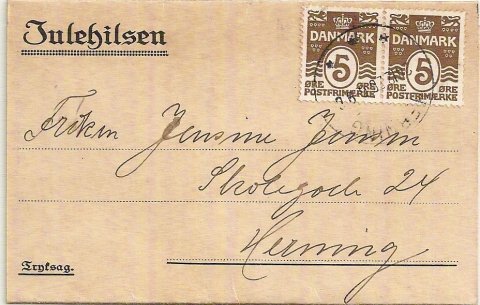 Julehilsen
DANMARK DANMARK
5 5
ØRE ØRE ØRE ØRE
POSTFRIMÆRKE POSTFRIMÆRKE
Frøken Jensine Jensen
Skolegade 24
Herning
Tryksag.